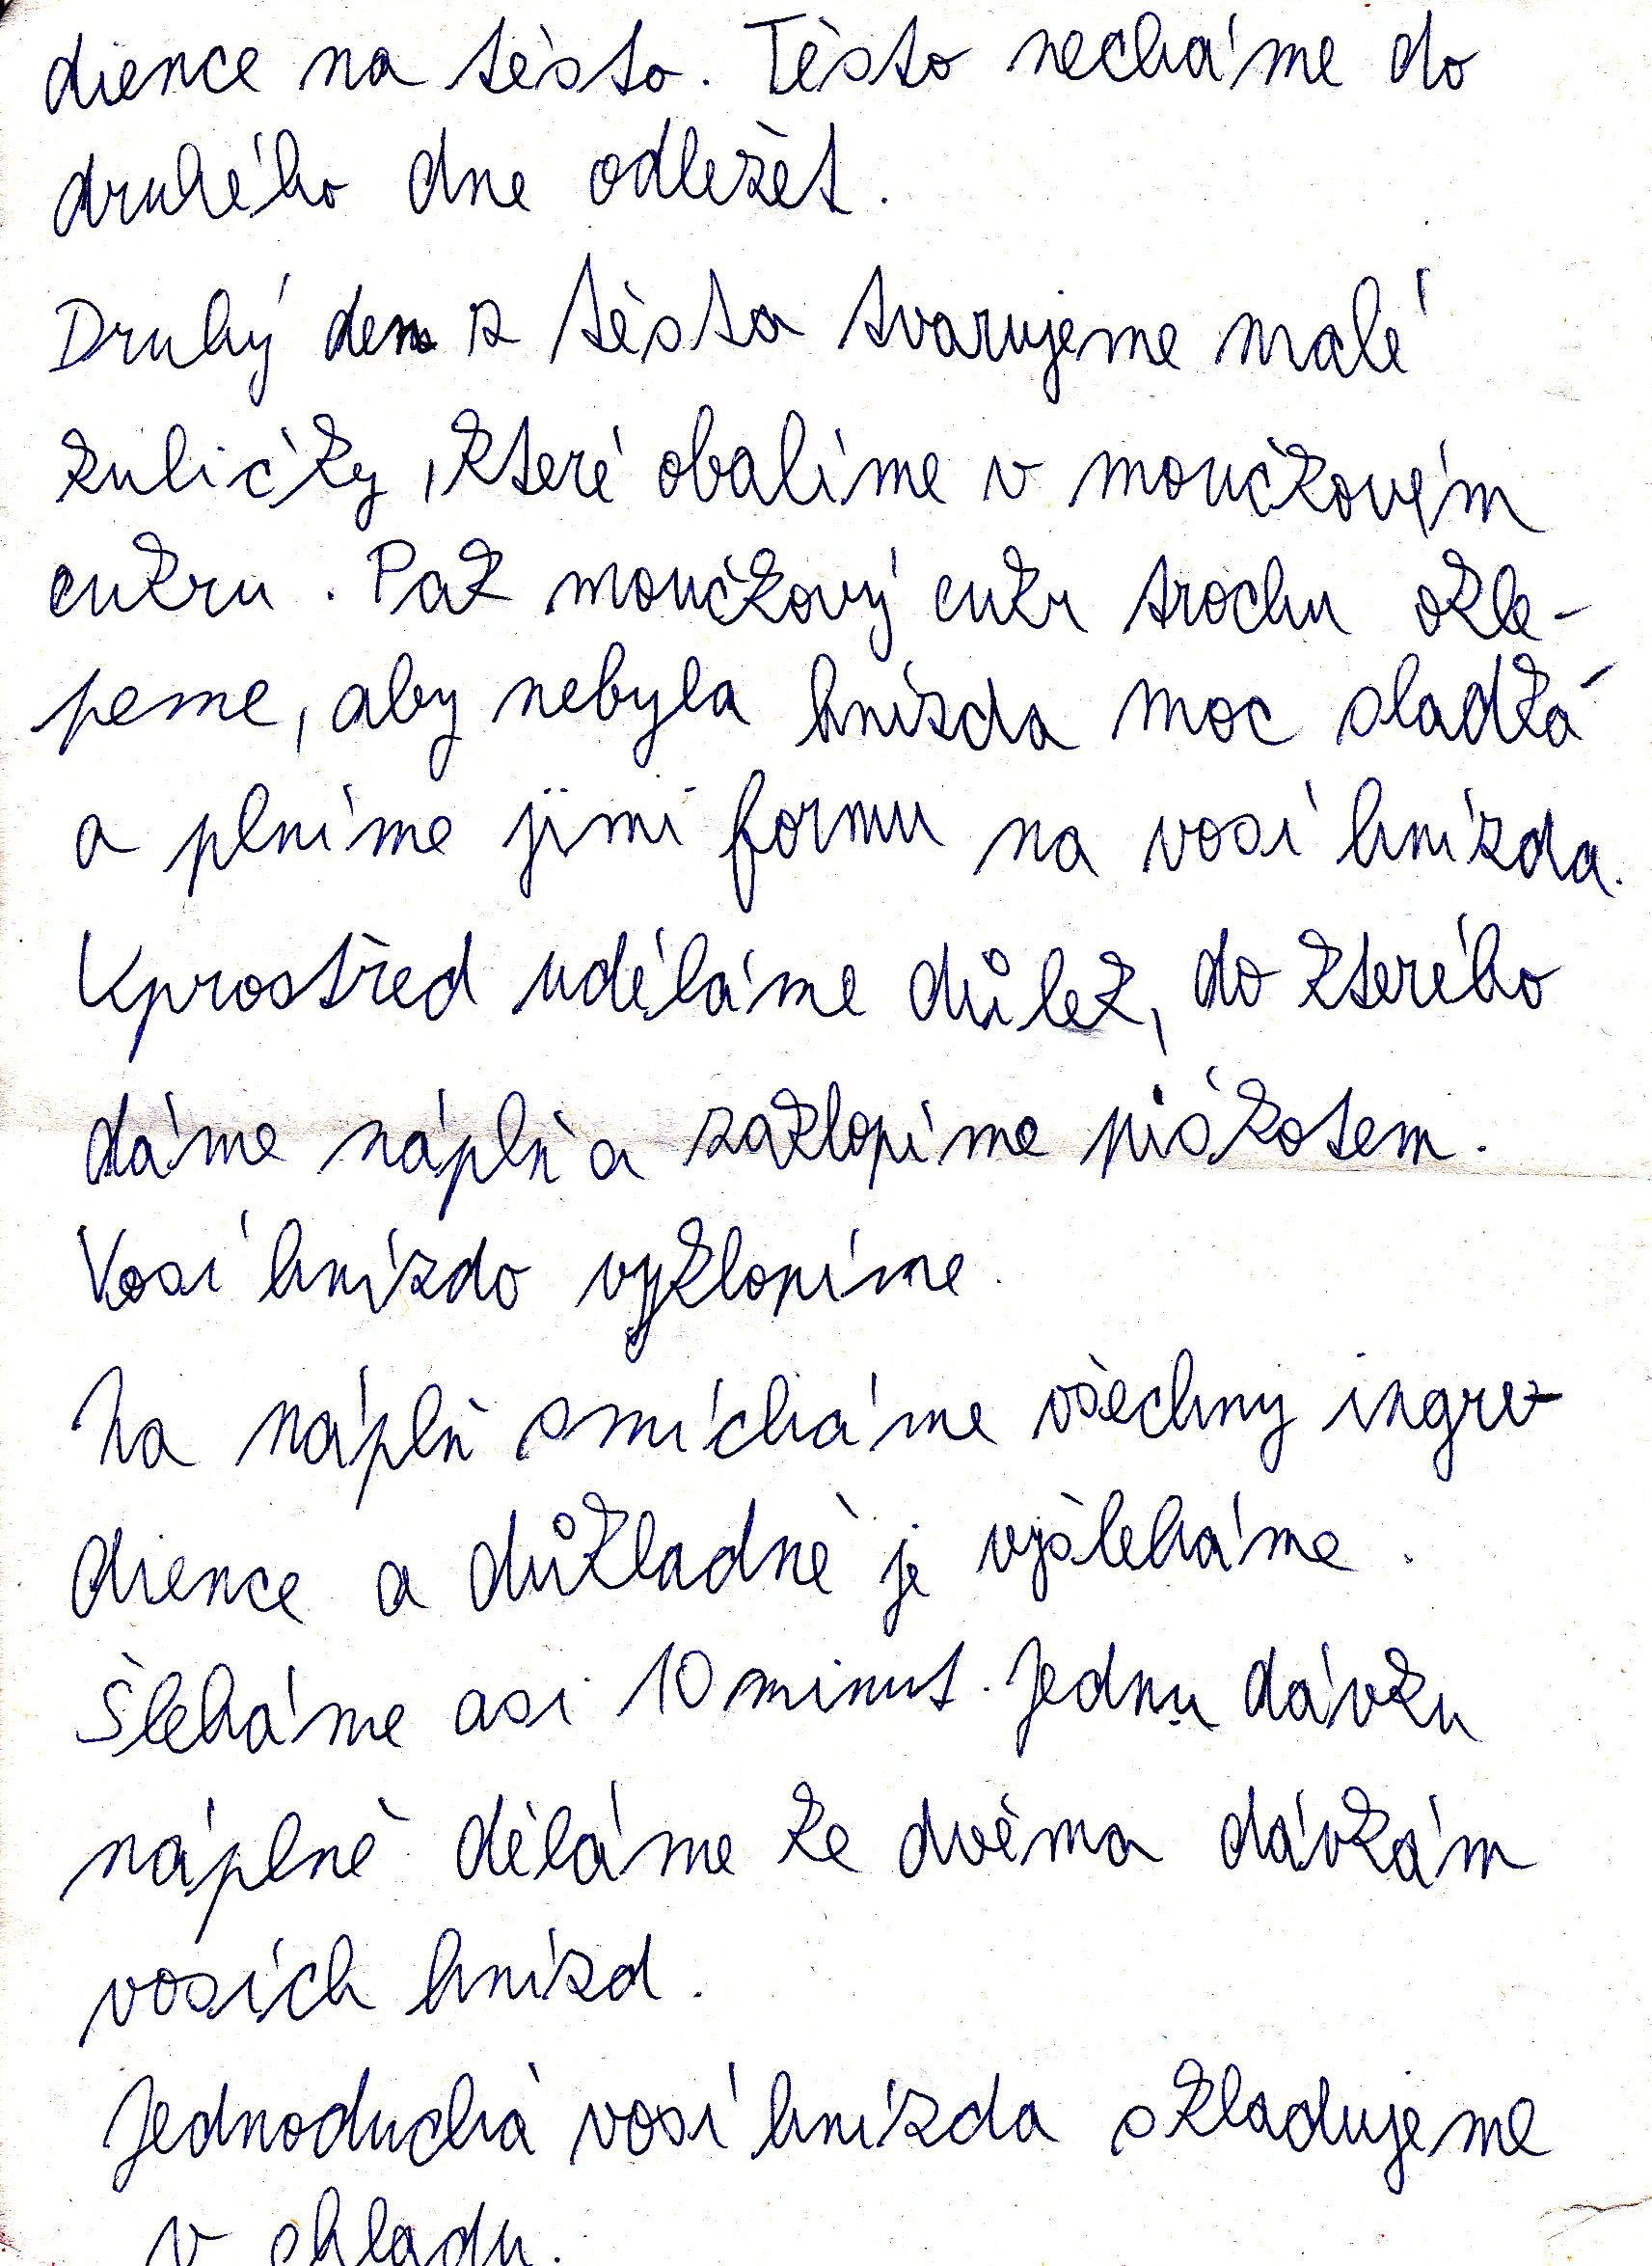 dience na těsto. Těsto necháme do
druhého dne odležet.
Druhý den z těsta tvarujeme malé
kuličky, které obalíme v moučkovém
cukru. Pak moučkový cukr trochu okle-
peme, aby nebyla hnízda moc sladká
a plníme jimi formu na vosí hnízda.
Uprostřed uděláme důlek, do kterého
dáme náplň a zaklopíme piškotem.
Vosí hnízdo vyklopíme.
Na náplň smícháme všechny ingre-
dience a důkladně je vyšleháme.
Šleháme asi 10 minut. Jednu dávku
náplně děláme ke dvěma dávkám
vosích hnízd.
Jednoduchá vosí hnízda skladujeme
v chladu.